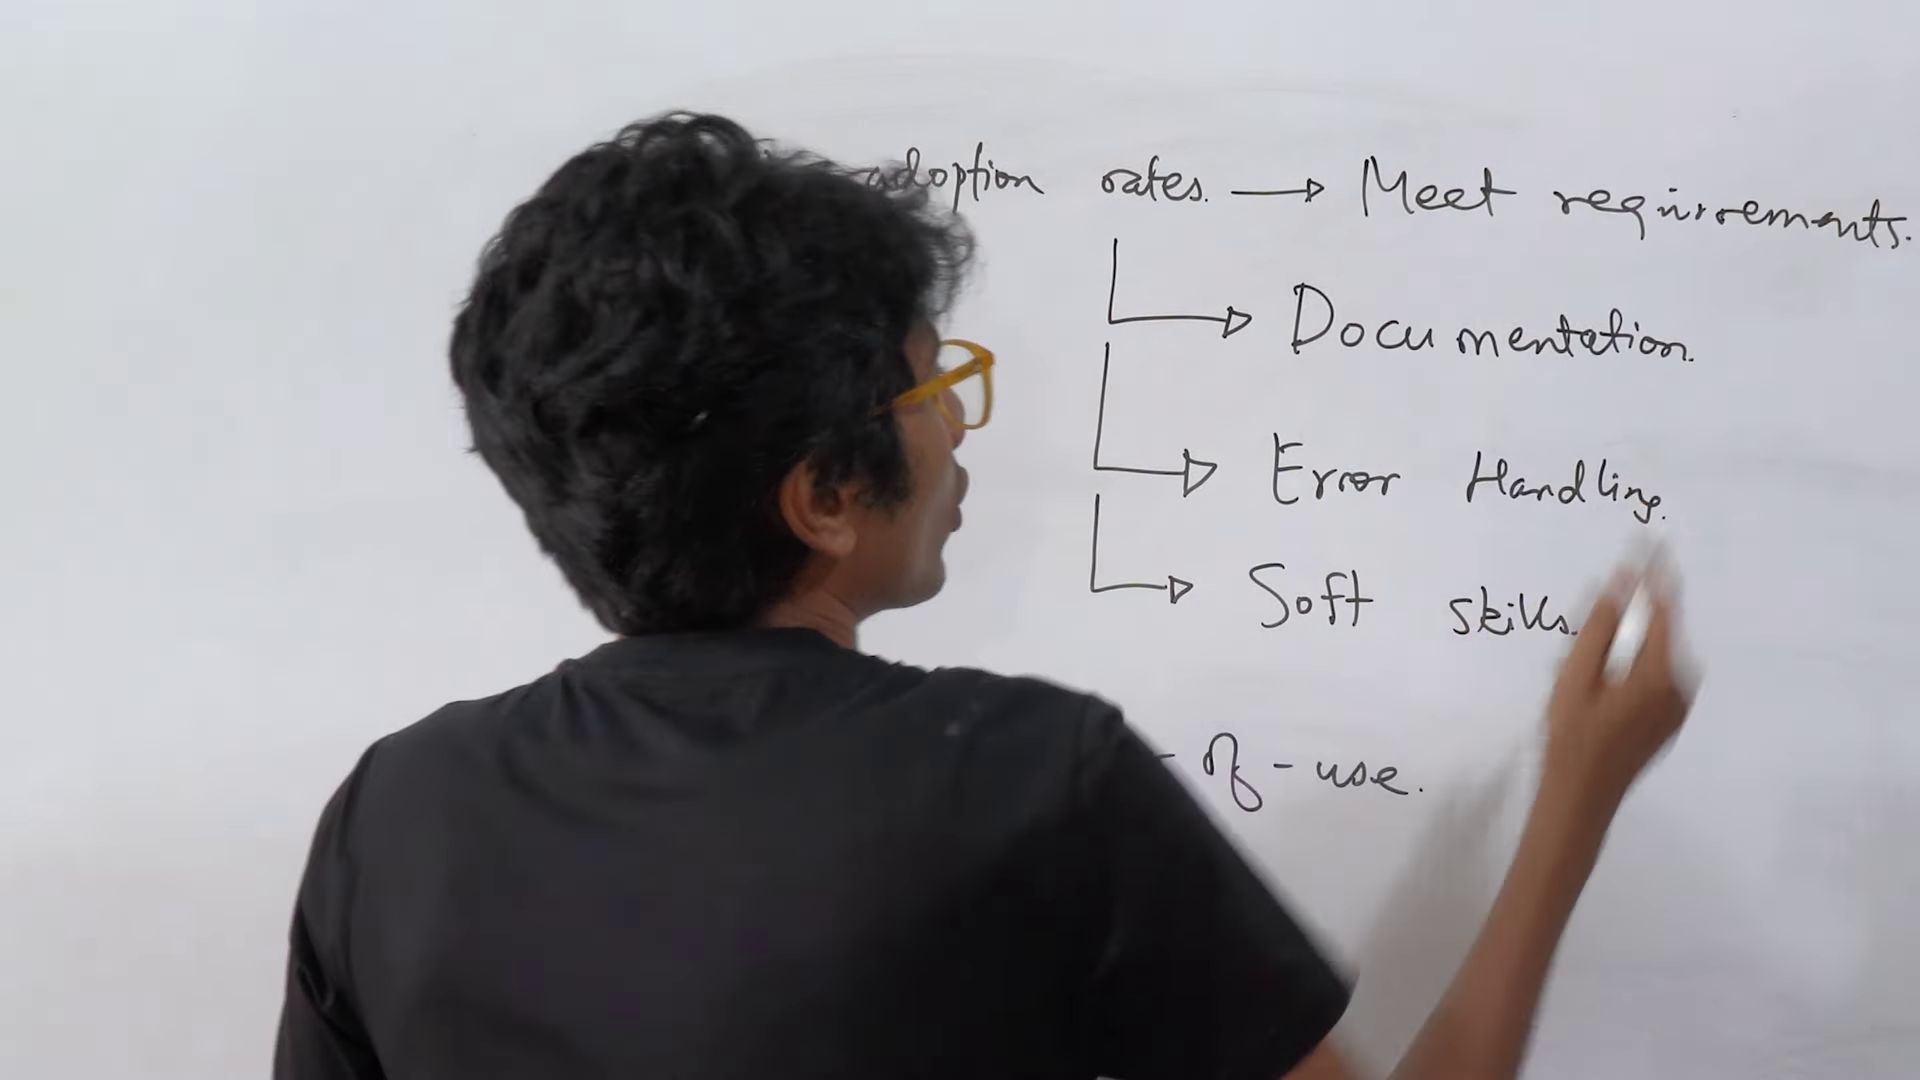 adoption rates. → Meet requirements.
Documentation.
Error Handling.
Soft skills.
- of - use.